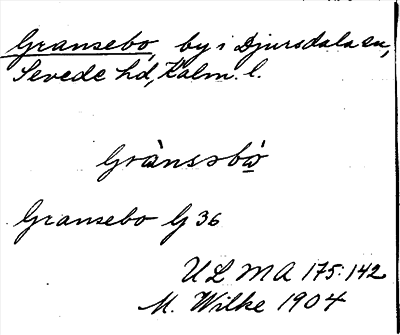 Gransebo, by i Djursdala sn,
Sevede hd, Kalm. l.
Grànsəbò
Gransebo G 36
ULMA 175:142
M. Wilke 1904